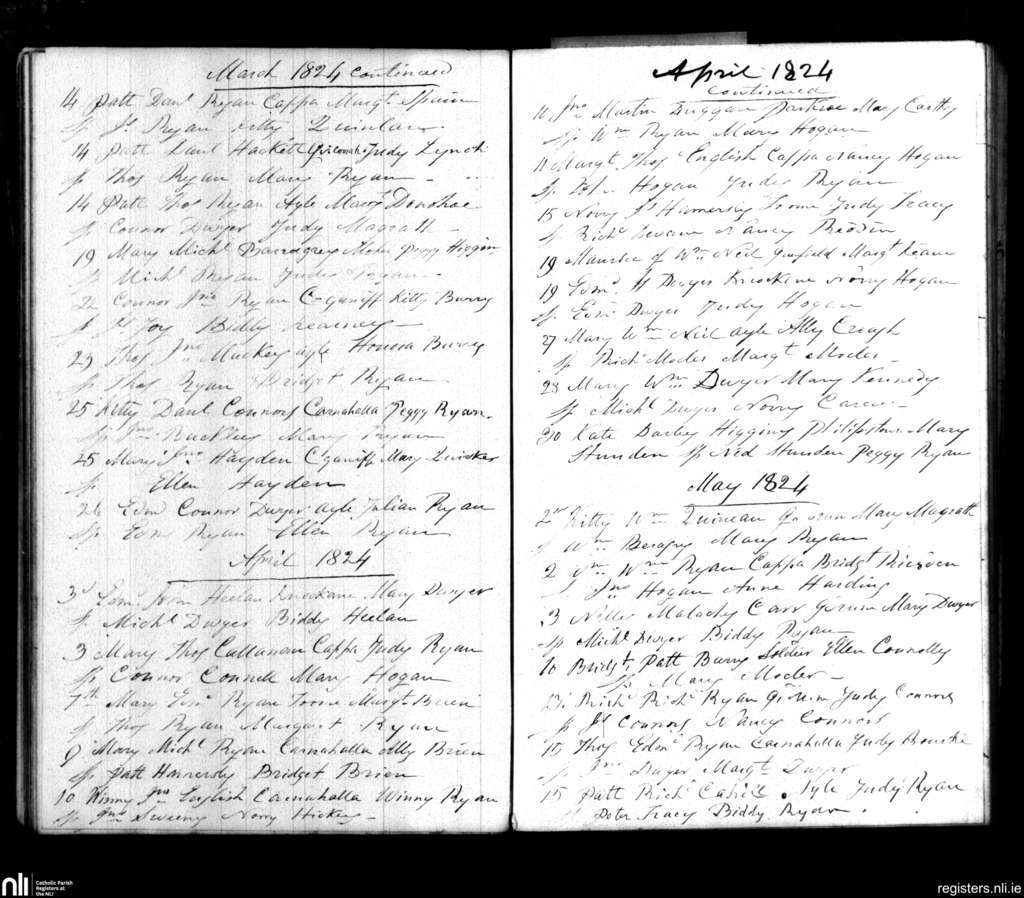 March 1824 continued
14 Patt Danl Ryan Cappa Margt Spain
sp Js Ryan Kitty Quinlan
14 Patt Danl Hackett Judy Lynch
sp Thos Ryan Mary Ryan
14 Patt Thos Ryan Ayle Mary Donohoe
sp Connor Dwyer Judy Magrath
19 Mary Michl Peggy Higgins
sp Michl Ryan Judy
22 Connor Jno Ryan C-ganiff Kitty Burry
sp Js Joy Biddy Kearney
23 Thos Jno Mackey Ayle Honora Burry
sp Thos Ryan Bridget Ryan
25 Kitty Danl Connors Carnahalla Peggy Ryan
sp Jno Buckley Mary Ryan
25 Mary Jno Hayden C-ganiff Mary
sp Ellen Hayden
26 Edm Connor Dwyer Ayle Julian Ryan
sp Edm Ryan Ellen Ryan
April 1824
3d Edm John Heelan Knockane Mary Dwyer
sp Michl Dwyer Biddy Heelan
3 Mary Thos Callanan Cappa Judy Ryan
sp Connor Connell Mary Hogan
7th Mary Edm Ryan Toome Margt Brien
sp Thos Ryan Margaret Ryan
9 Mary Michl Ryan Carnahalla Ally Brien
sp Patt Hannerdy Bridget Brien
10 Winny Jno English Carnahalla Winny Ryan
sp Jno Sweeny Norry Hickey
April 1824
continued
11 Jno Martin Duggan Mary Carthy
sp Wm Ryan Mary Hogan
11 Margt Thos English Cappa Nancy Hogan
sp Hogan Judy Ryan
15 Norry Js Toome Judy Tracy
sp Richd Nancy Riedin
19 Maurice of Wm Neil Margt Keane
19 Edmd Js Dwyer Knockane Norry Hogan
sp Edm Dwyer Judy Hogan
27 Mary Wm Neil Ayle Ally Creagh
sp Richd Moder Margt Moder
28 Mary Wm Dwyer Mary Kennedy
sp Michl Dwyer Norry Carew
30 Kate Darby Higgins Philipstown Mary
Hunden sp Ned Hunden Peggy Ryan
May 1824
2d Kitty Wm Quinean Mary Magrath
sp Wm Mary Ryan
2 Wm Ryan Cappa Bridgt Rierden
Jno Hogan Anne Harding
3 Malachy Carr Mary Dwyer
sp Michl Dwyer Biddy Ryan
10 Bridgt Patt Barry Soldier Ellen Connolly
sp Mary Moder
13 Richd Richd Ryan Judy Connors
sp Js Connors Nancy Connors
15 Thos Edmd Ryan Carnahalla Judy Bourke
sp Jno Dwyer Margt Dwyer
15 Patt Richd Ayle Judy Ryan
sp Peter Tracy Biddy Ryan
nli
Catholic Parish
Registers at
the NLI
registers.nli.ie